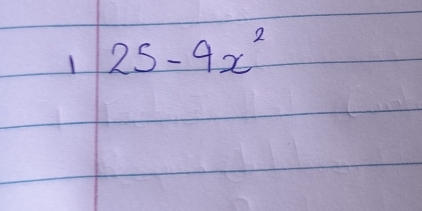 1 25-9x²